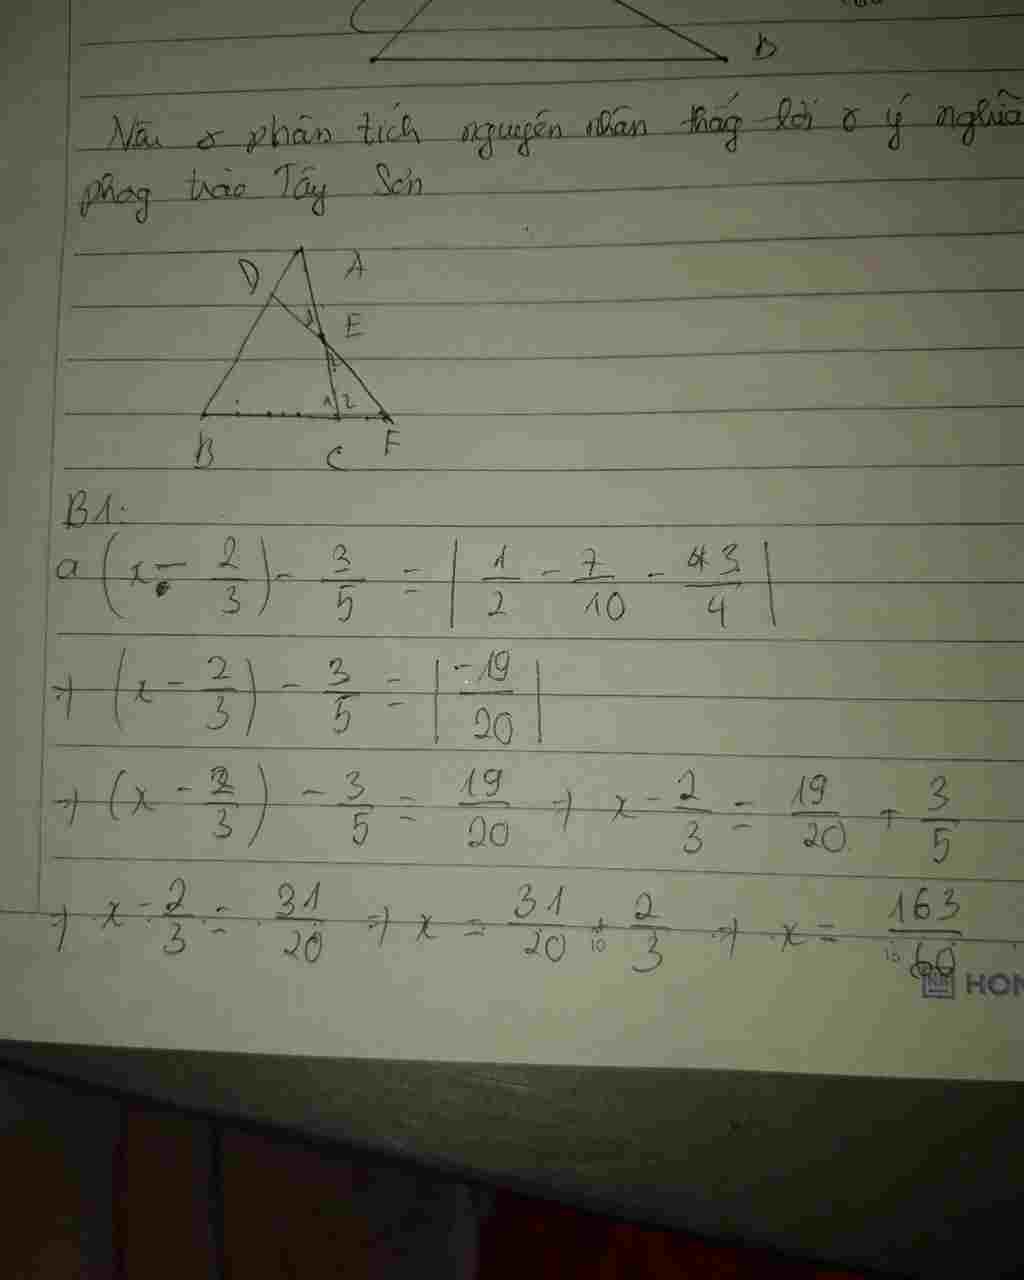 D
Nêu & phân tích nguyên nhân thắg lợi & ý nghĩa
phog trào Tây Sơn
D A
E
1 2
B C F
B1:
a (x - 2/3) - 3/5 = |1/2 - 7/10 - 3/4|
=> (x - 2/3) - 3/5 = |-19/20|
=> (x - 2/3) - 3/5 = 19/20 => x - 2/3 = 19/20 + 3/5
=> x - 2/3 = 31/20 => x = 31/20 + 2/3 => x = 163/60
HON